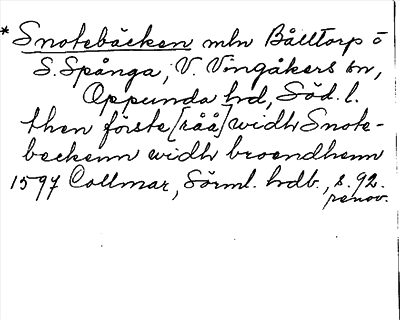 *Snotebäcken mln Bålltorp o
S. Spånga, V. Vingåkers sn,
Oppunda hd, Söd. l.
then förste [råå] widh Snote-
beckenn widh broendhenn
1597 Collmar, Sörml. hdb., s. 92.
renov.